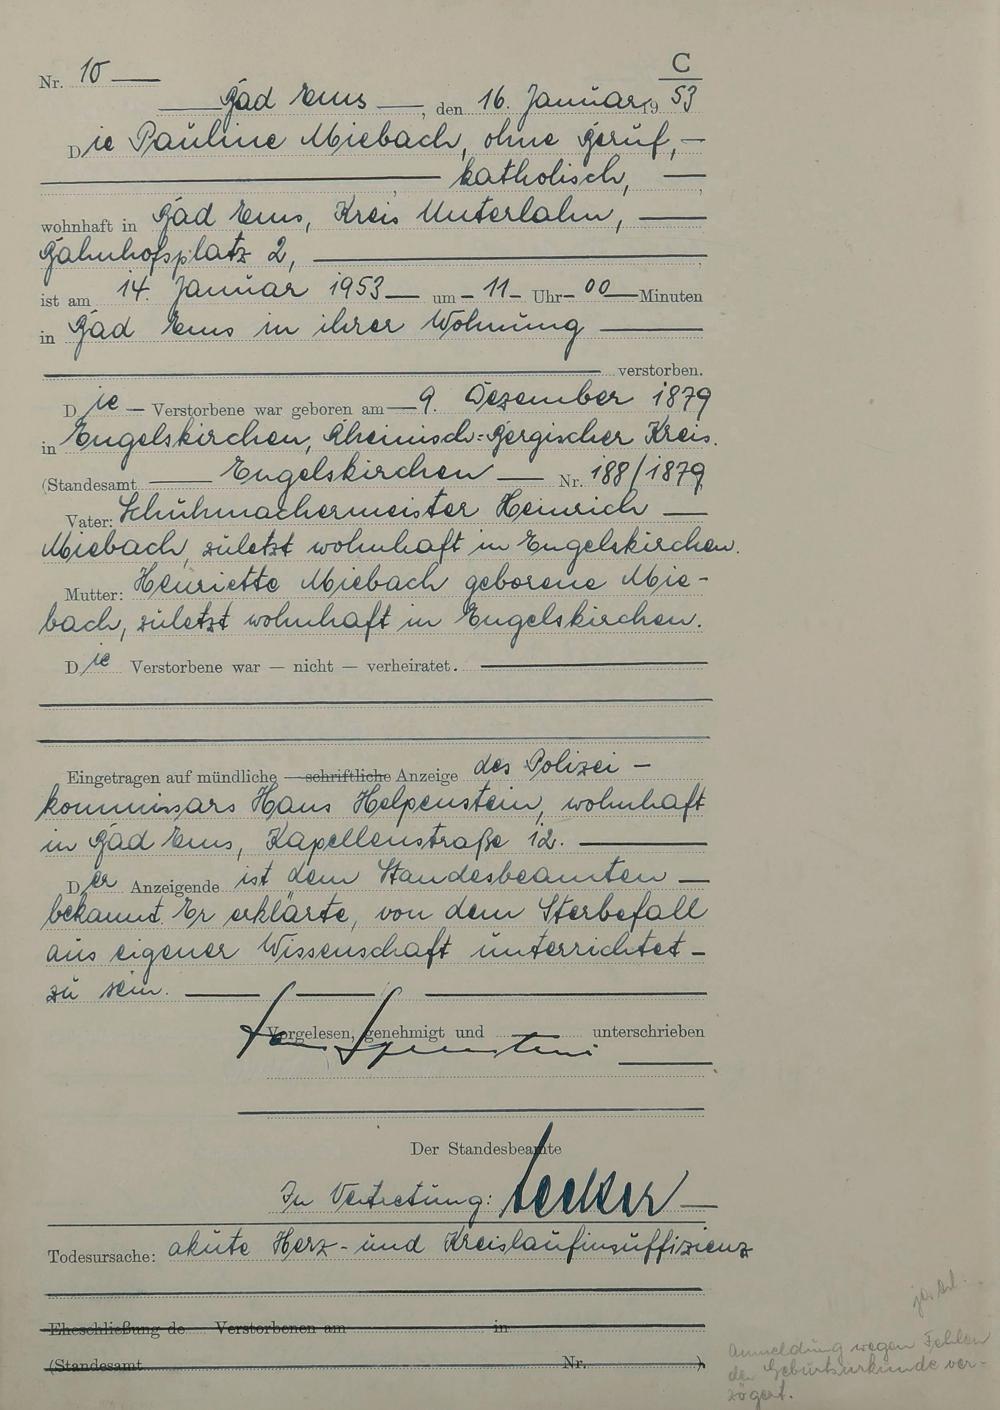 C
Nr. 10
Bad Ems, den 16. Januar 1953
Die Pauline Miebach, ohne Beruf,
katholisch,
wohnhaft in Bad Ems, Kreis Unterlahn,
Bahnhofsplatz 2,
ist am 14. Januar 1953 um 11 Uhr 00 Minuten
in Bad Ems in ihrer Wohnung
verstorben.
Die Verstorbene war geboren am 9. Dezember 1879
in Engelskirchen, Rheinisch=Bergischer Kreis.
(Standesamt Engelskirchen Nr. 188/1879
Vater: Schuhmachermeister Heinrich
Miebach, zuletzt wohnhaft in Engelskirchen.
Mutter: Henriette Miebach geborene Mie-
bach, zuletzt wohnhaft in Engelskirchen.
Die Verstorbene war — nicht — verheiratet.
Eingetragen auf mündliche — schriftliche Anzeige des Polizei-
kommissars Hans Helpenstein, wohnhaft
in Bad Ems, Kapellenstraße 12.
Der Anzeigende ist dem Standesbeamten
bekannt. Er erklärte, von dem Sterbefall
aus eigener Wissenschaft unterrichtet
zu sein.
Vorgelesen, genehmigt und unterschrieben
Der Standesbeamte
In Vertretung:
Todesursache: akute Herz- und Kreislaufinsuffizienz
Eheschließung de Verstorbenen am in
(Standesamt Nr. )
Anmeldung wegen Fehlen
der Geburtsurkunde ver-
zögert.